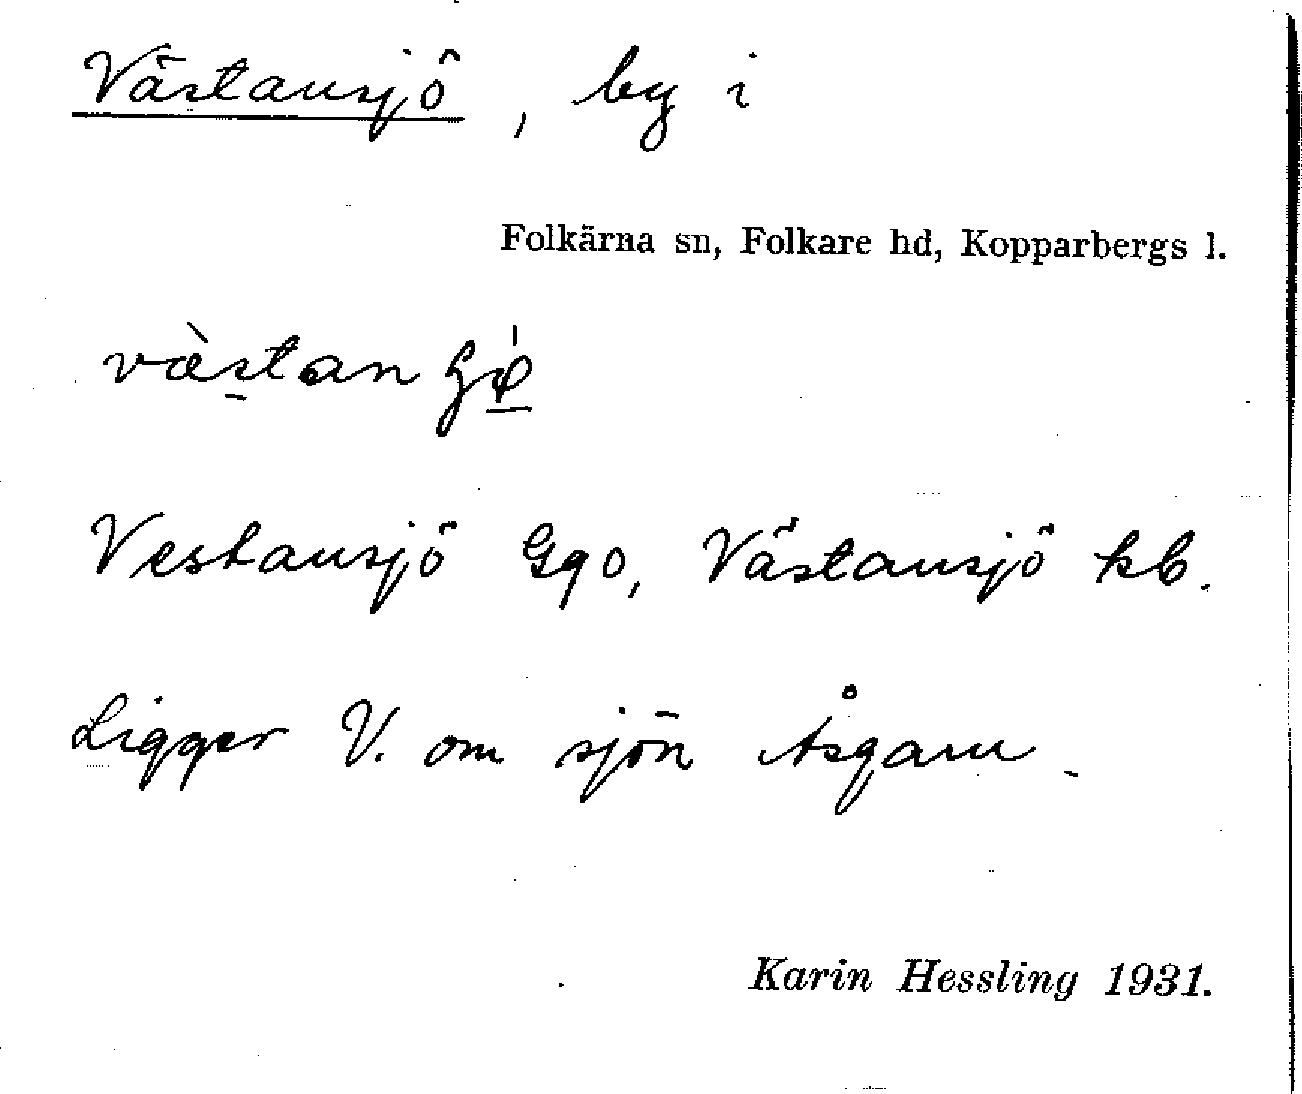 Västansjö, by i
Folkärna sn, Folkare hd, Kopparbergs l.
væ̀stan
Vestansjö Ggo, Västansjö kb.
Ligger V. om sjön Åsgarn.
Karin Hessling 1931.